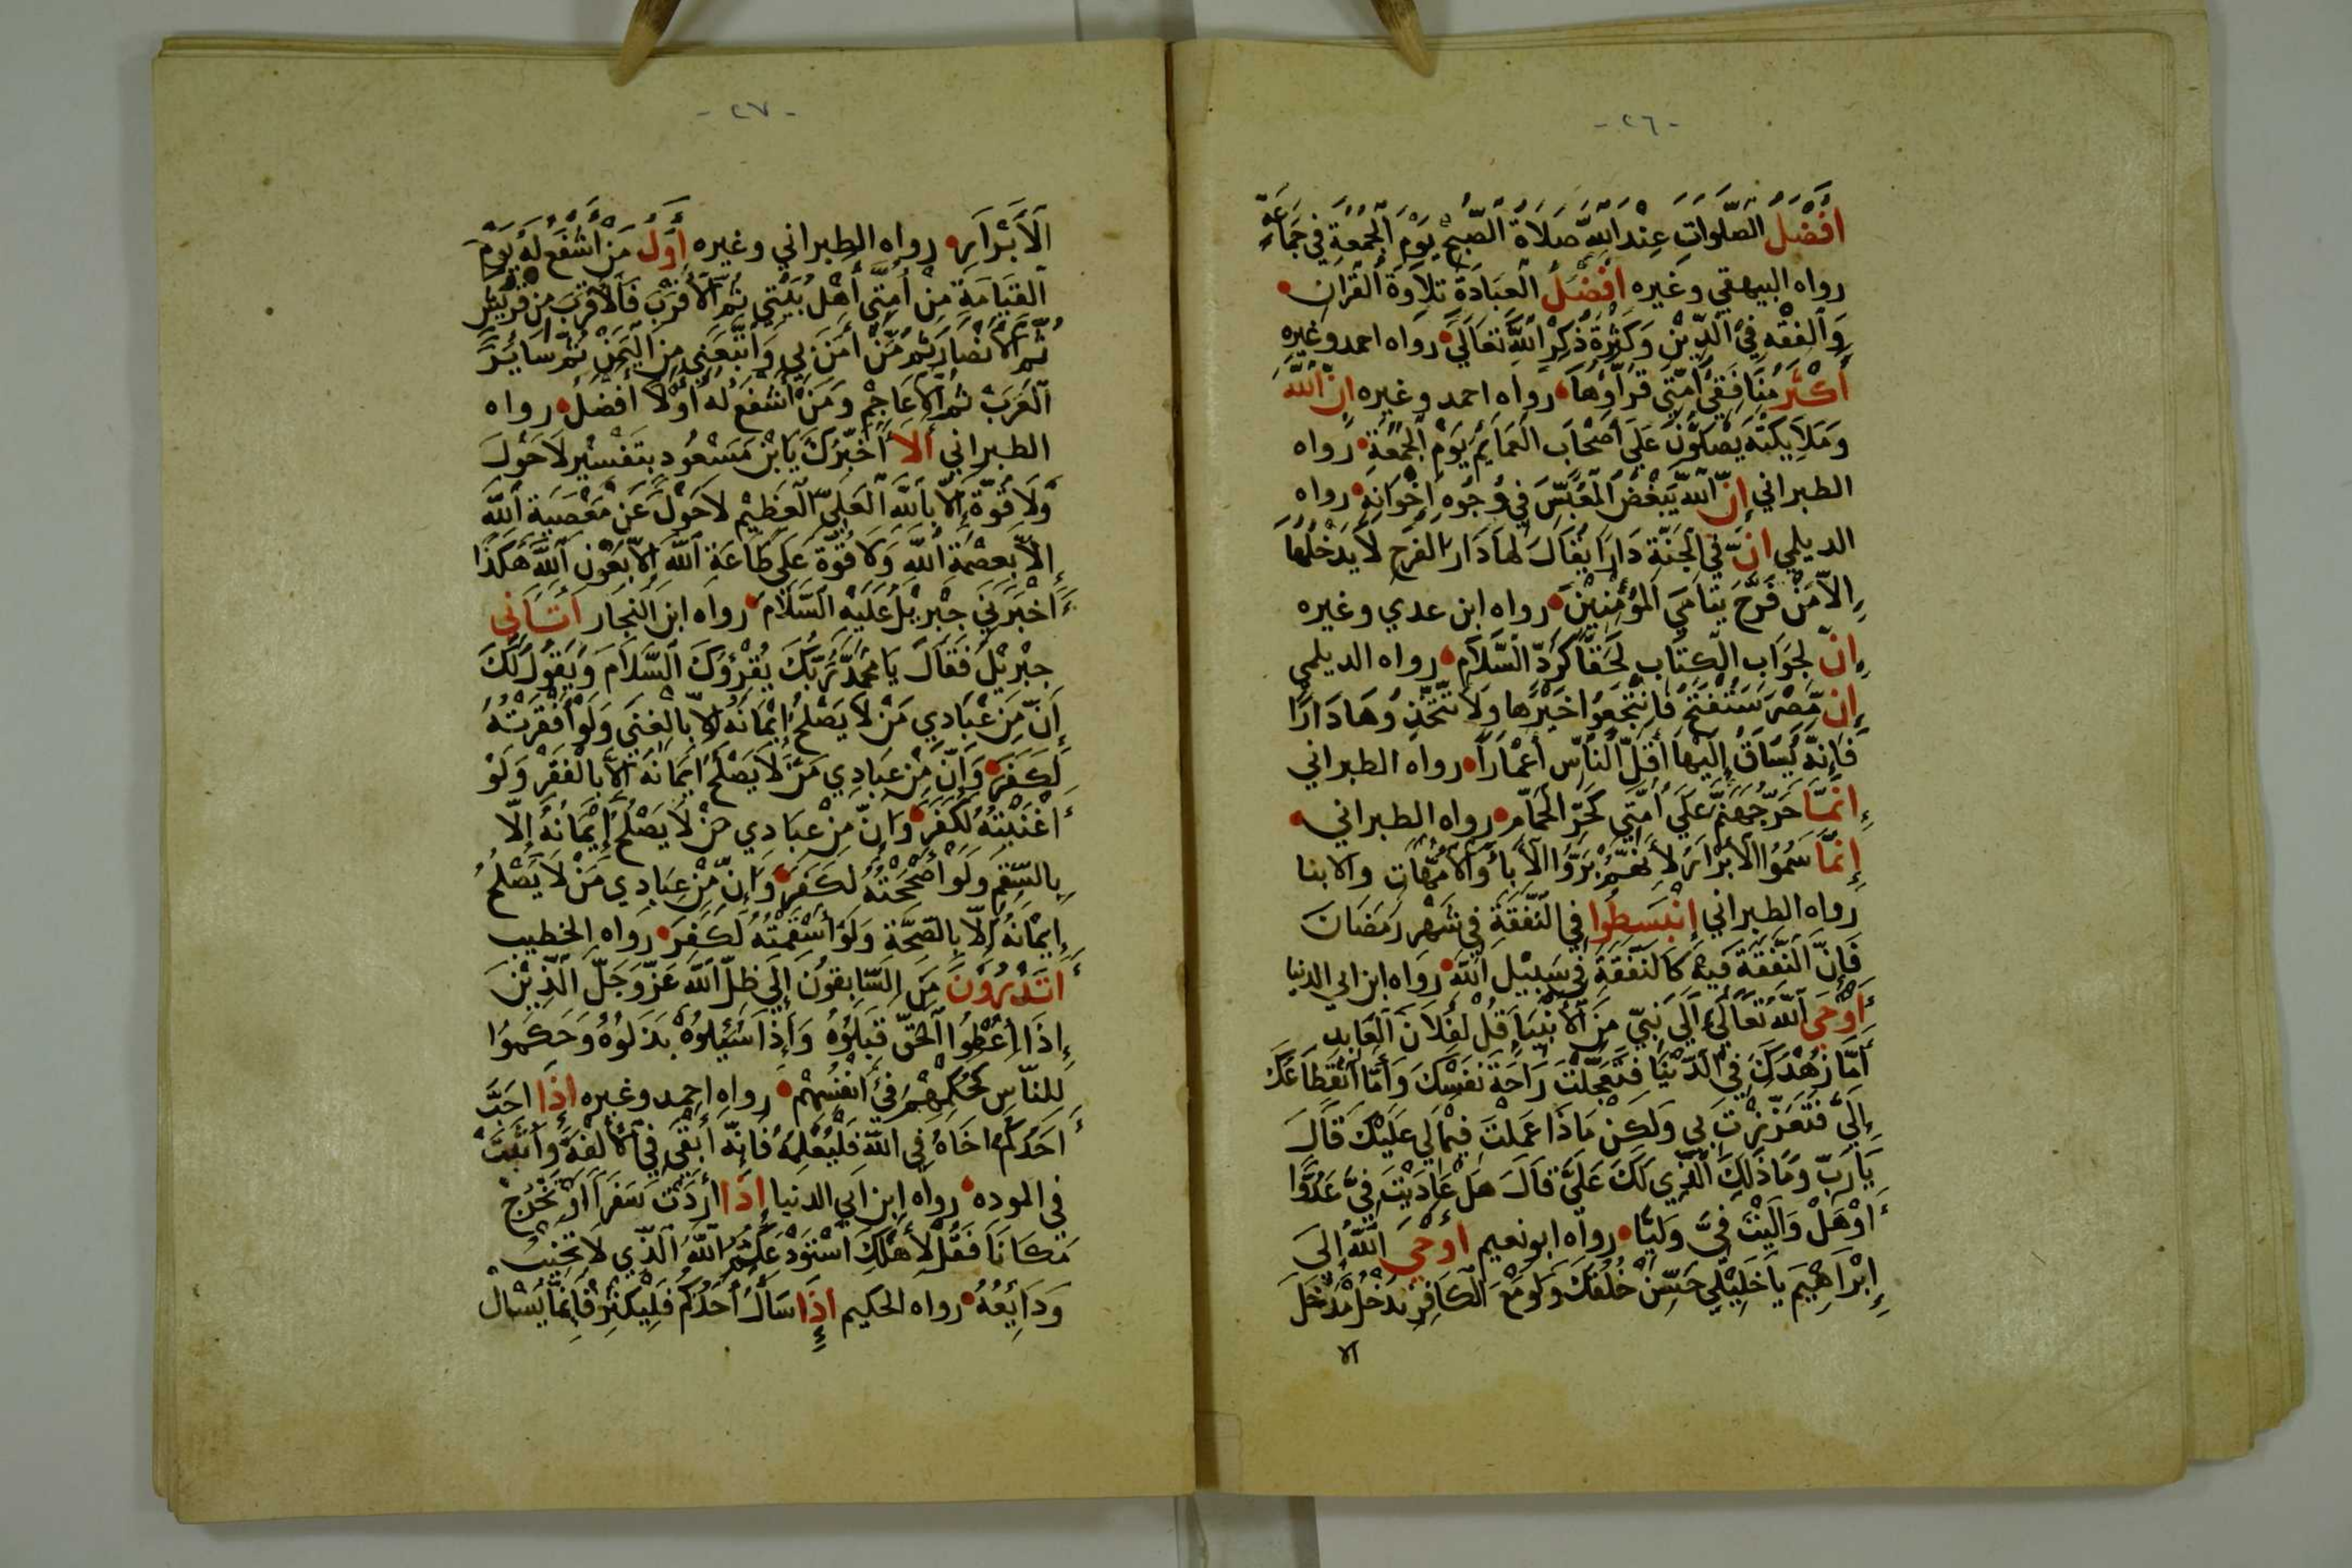 -٢٦-
أَفْضَلُ الصَّلَوَاتِ عِنْدَ اللّٰهِ صَلَاةُ الصُّبْحِ يَوْمَ الْجُمُعَةِ فِي جَمَاعَةٍ
رواه البيهقي وغيره أَفْضَلُ الْعِبَادَةِ تِلَاوَةُ الْقُرْآنِ
وَالْفِقْهُ فِي الدِّيْنِ وَكَثْرَةُ ذِكْرِ اللّٰهِ تَعَالَى رواه احمد وغيره
أَكْثَرُ مُنَافِقِي أُمَّتِي قُرَّاؤُهَا رواه احمد وغيره إِنَّ اللّٰهَ
وَمَلَايِكَتَهُ يُصَلُّوْنَ عَلَى أَصْحَابِ الْعَمَايِمِ يَوْمَ الْجُمُعَةِ رواه
الطبراني إِنَّ اللّٰهَ يَبْغُضُ الْمُعَبِّسَ فِي وُجُوهِ إِخْوَانِهِ رواه
الديلمي إِنَّ فِي الْجَنَّةِ دَارًا يُقَالُ لَهَا دَارُ الْفَرَحِ لَا يَدْخُلُهَا
إِلَّا مَنْ فَرَّحَ يَتَامَى الْمُؤْمِنِيْنَ رواه ابن عدي وغيره
إِنَّ لِجَوَابِ الْكِتَابِ لَحَقًّا كَرَدِّ السَّلَامِ رواه الديلمي
إِنَّ مِصْرَ سَتُفْتَحُ فَانْتَجِعُوا خَيْرَهَا وَلَا تَتَّخِذُوهَا دَارًا
فَإِنَّهُ يُسَاقُ إِلَيْهَا أَقَلُّ النَّاسِ أَعْمَارًا رواه الطبراني
إِنَّمَا حَرُّ جَهَنَّمَ عَلَى أُمَّتِي كَحَرِّ الْحَمَّامِ رواه الطبراني
إِنَّمَا سُمُّوا الْأَبْرَارُ لِأَنَّهُمْ بَرُّوا الْآبَاءَ وَالْأُمَّهَاتِ والابنا
رواه الطبراني إِنْبَسِطُوا فِي النَّفَقَةِ فِي شَهْرِ رَمَضَانَ
فَإِنَّ النَّفَقَةَ فِيهِ كَالنَّفَقَةِ فِي سَبِيْلِ اللّٰهِ رواه ابن ابي الدنيا
أَوْحَى اللّٰهُ تَعَالَى إِلَى نَبِيٍّ مِنَ الْأَنْبِيَا قُلْ لِفُلَانٍ الْعَابِدِ
أَمَّا زُهْدُكَ فِي الدُّنْيَا فَتَعَجَّلْتَ رَاحَةَ نَفْسِكَ وَأَمَّا انْقِطَاعُكَ
إِلَيَّ فَتَعَزَّزْتَ بِي وَلَكِنْ مَاذَا عَمِلْتَ فِيْمَا لِي عَلَيْكَ قَالَ
يَا رَبِّ وَمَا ذَلِكَ الَّذِي لَكَ عَلَيَّ قَالَ هَلْ عَادَيْتَ فِيَّ عَدُوًّا
أَوْ هَلْ وَالَيْتَ فِيَّ وَلِيًّا رواه ابونعيم أَوْحَى اللّٰهُ إِلَى
إِبْرَاهِيْمَ يَا خَلِيْلِي حَسِّنْ خُلُقَكَ وَلَوْ مَعَ الْكَافِرِ تَدْخُلْ مَدْخَلَ
الا
-٢٧-
اَلْأَبْرَارِ رواه الطبراني وغيره أَوَّلُ مَنْ أَشْفَعُ لَهُ يَوْمَ
الْقِيَامَةِ مِنْ أُمَّتِي أَهْلُ بَيْتِي ثُمَّ الْأَقْرَبُ فَالْأَقْرَبُ مِنْ قُرَيْشٍ
ثُمَّ الْأَنْصَارُ ثُمَّ مَنْ آمَنَ بِي وَاتَّبَعَنِي مِنَ الْيَمَنِ ثُمَّ سَائِرُ
الْعَرَبِ ثُمَّ الْأَعَاجِمُ وَمَنْ أَشْفَعُ لَهُ أَوَّلًا أَفْضَلُ رواه
الطبراني أَلَا أُخْبِرُكَ يَا بْنَ مَسْعُودٍ بِتَفْسِيْرِ لَا حَوْلَ
وَلَا قُوَّةَ إِلَّا بِاللّٰهِ الْعَلِيِّ الْعَظِيْمِ لَا حَوْلَ عَنْ مَعْصِيَةِ اللّٰهِ
إِلَّا بِعِصْمَةِ اللّٰهِ وَلَا قُوَّةَ عَلَى طَاعَةِ اللّٰهِ إِلَّا بِعَوْنِ اللّٰهِ هَكَذَا
أَخْبَرَنِي جِبْرِيْلُ عَلَيْهِ السَّلَامُ رواه ابن النجار أَتَانِي
جِبْرِيْلُ فَقَالَ يَا مُحَمَّدُ رَبُّكَ يُقْرِؤُكَ السَّلَامَ وَيَقُولُ لَكَ
إِنَّ مِنْ عِبَادِي مَنْ لَا يَصْلُحُ إِيْمَانُهُ إِلَّا بِالْغِنَى وَلَوْ أَفْقَرْتُهُ
لَكَفَرَ وَإِنَّ مِنْ عِبَادِي مَنْ لَا يَصْلُحُ إِيمَانُهُ إِلَّا بِالْفَقْرِ وَلَوْ
أَغْنَيْتُهُ لَكَفَرَ وَإِنَّ مِنْ عِبَادِي مَنْ لَا يَصْلُحُ إِيْمَانُهُ إِلَّا
بِالسَّقَمِ وَلَوْ أَصْحَحْتُهُ لَكَفَرَ وَإِنَّ مِنْ عِبَادِي مَنْ لَا يَصْلُحُ
إِيْمَانُهُ إِلَّا بِالصِّحَّةِ وَلَوْ أَسْقَمْتُهُ لَكَفَرَ رواه الخطيب
أَتَدْرُوْنَ مَنِ السَّابِقُونَ إِلَى ظِلِّ اللّٰهِ عَزَّ وَجَلَّ الَّذِيْنَ
إِذَا أُعْطُوا الْحَقَّ قَبِلُوْهُ وَإِذَا سُئِلُوْهُ بَذَلُوْهُ وَحَكَمُوا
لِلنَّاسِ كَحُكْمِهِمْ فِي أَنْفُسِهِمْ رواه احمد وغيره إِذَا احَبَّ
أَحَدُكُمْ اخَاهُ فِي اللّٰهِ فَلْيُعْلِمْهُ فَإِنَّهُ أَبْقَى فِي الْأُلْفَةِ وَأَثْبَتُ
في الموده رواه ابن ابي الدنيا إِذَا أَرَدْتَ سَفَرًا أَوْ تَخْرُجُ
مَكَانًا فَقُلْ لِأَهْلِكَ اسْتَوْدَعْتُكُمُ اللّٰهَ الَّذِي لَا تَخِيْبُ
وَدَايِعُهُ رواه الحكيم إِذَا سَأَلَ أَحَدُكُمْ فَلْيُكْثِرْ فَإِنَّمَا يَسْأَلُ